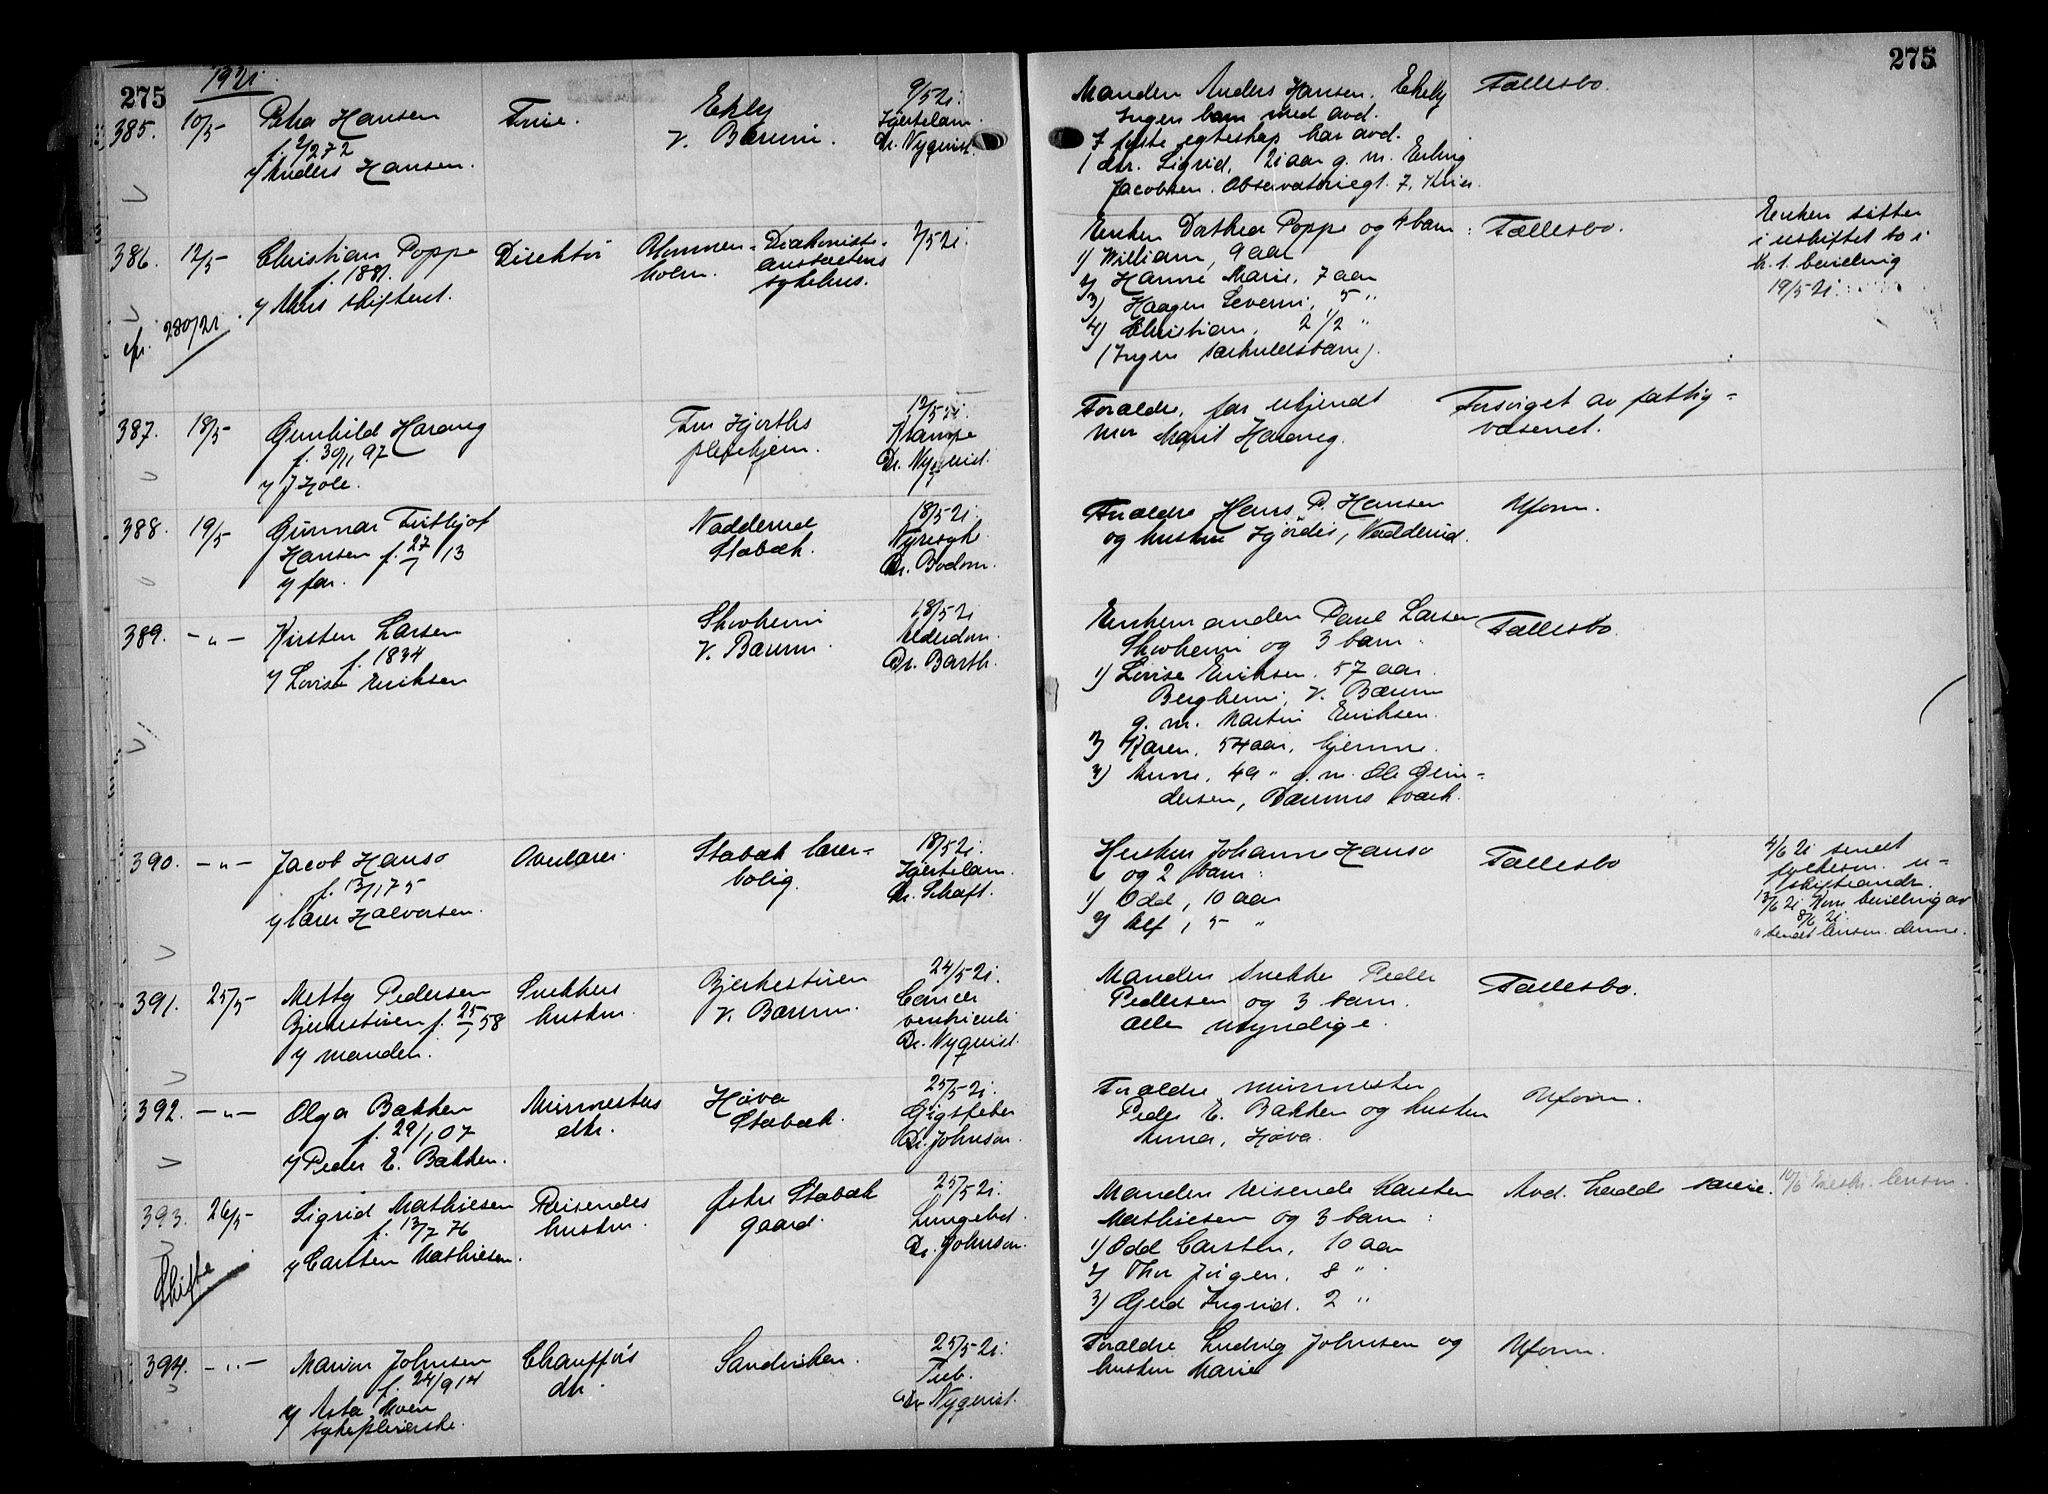 275
1921
385. 10/5 Petra Hansen Frue. Ekely 9/5 21.
f. 2/2 72 V. Bærum. Hjertelam.
v/ Anders Hansen. Dr. Nyquist.
386. 12/5 Christian Poppe Direktør Blommen- Diakoniss- 7/5 21
f. 1881. holm. anstaltens
v/ Akers skifteret. sykehus.
cfr. 280/21.
387. 18/5 Gunhild Haraug Fru Hjorths 12/5 21.
f. 30/1 97 pleiehjem. Krampe
v/ J Hole. Dr. Nyquist.
388. 19/5 Gunnar Fritjof Nadderud 18/5 21.
Hansen f. 27/1 13 Stabæk. Nyresyk.
v/ far. Dr. Bodom.
389. -"- Kirsten Larsen Skovheim 18/5 21
f. 1834 V. Bærum. Alderdom.
v/ Lovise Eriksen Dr. Barth.
390. -"- Jacob Hansø Overlærer. Stabæk lærer- 18/5 21.
f. 13/1 75 bolig. Hjertelam.
v/ lærer Halvorsen. Dr. Schaft.
391. 25/5 Metty Pedersen Snekkers Bjerkestuen 24/5 21.
Bjerkestuen f. 25/1 58 hustru. V. Bærum. Cancer
v/ manden. ventriculi
Dr. Nyquist.
392. -"- Olga Bakken Murmesters Høva 25/5 21.
f. 29/1 07 dtr. Stabæk. Gigtfeber
v/ Peder E. Bakken. Dr. Johnson.
393. 26/5 Sigrid Mathiesen Reisendes Østre Stabæk 25/5 21.
f. 13/7 76 hustru. gaard. Lungebet.
v/ Carsten Mathiesen. Dr. Johnson.
Skifte
394. -"- Marion Johnsen Chaufførs Sandviken. 25/5 21.
f. 24/9 14 dtr. Tub.
v/ Asta Moen Dr. Nyquist.
sykepleierske.
275
Manden Anders Hansen, Ekely Fællesbo.
Ingen barn med avd.
I første egteskap har avd.
1 dtr. Sigrid, 21 aar g. m. Erling
Jacobsen. Observatoriegt. 7, Kr.ia.
Enken Dorthea Poppe og 4 barn: Fællesbo. Enken sitter
1) William, 9 aar i uskiftet bo i
2) Hanne Marie, 7 aar h. t. bevilling
3) Haagen Severin, 5 " 19/5 21.
4) Christian, 2 1/2 "
(Ingen særkuldsbarn).
Forældre, far ukjendt Forsørget av fattig-
mor Marit Haraug. væsenet.
Forældre Hans P. Hansen Uform.
og hustru Hjørdis, Nadderud.
Enkemanden Paul Larsen Fællesbo.
Skovheim og 3 barn.
1) Lovise Eriksen, 57 aar.
Bergheim, V. Bærum
g. m. Martin Eriksen.
2) Karen, 54 aar, hjemme.
3) Anne, 49 " g. m. Ole Gun-
dersen, Bærums Værk.
Hustru Johanne Hansø Fællesbo 4/6 21 sendt
og 2 barn: fylkesm. u-
1) Odd, 10 aar skifteandr.
2) Alf, 5 " 13/6 21 Kom bevilling av
8/6 21.
" sendt lensm. denne.
Manden snekker Peder Fællesbo.
Pedersen og 3 barn.
alle myndige.
Forældre murmester Uform.
Peder E. Bakken og hustru
Anna, Høva.
Manden reisende Karsten Avd. hadde særeie. 10/6 lensm.
Mathiesen og 3 barn:
1) Odd Carsten, 10 aar
2) Thor Jørgen, 8 "
3) Gerd Ingrid, 2 "
Forældre Ludvig Johnsen og Uform.
hustru Marie